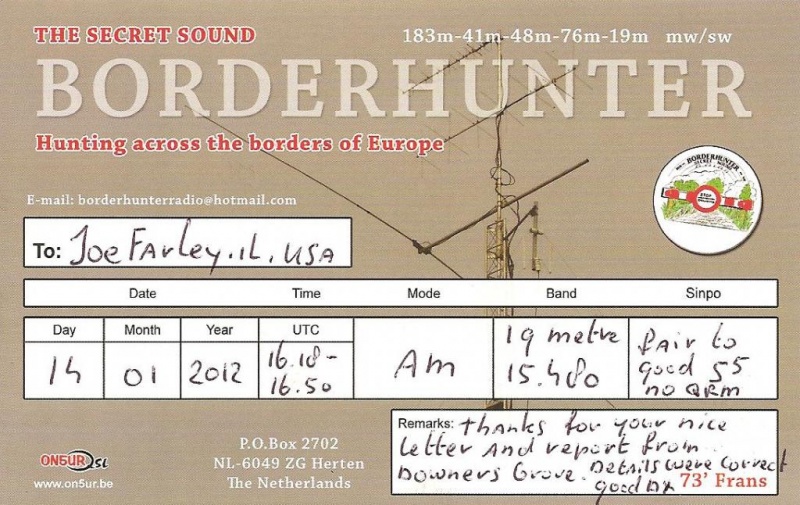 THE SECRET SOUND
183m-41m-48m-76m-19m mw/sw
BORDERHUNTER
Hunting across the borders of Europe
E-mail: borderhunterradio@hotmail.com
BORDERHUNTER
STOP
To: Joe Farley.IL.USA
Date Time Mode Band Sinpo
Day Month Year UTC
14 01 2012 16.18-
16.50
Am
19 metre
15.480
fair to
good 55
no QRM
Remarks: thanks for your nice
letter and report from
Downers Grove. Details were correct
good DX 73' Frans
P.O.Box 2702
NL-6049 ZG Herten
The Netherlands
ON5URQSL
www.on5ur.be